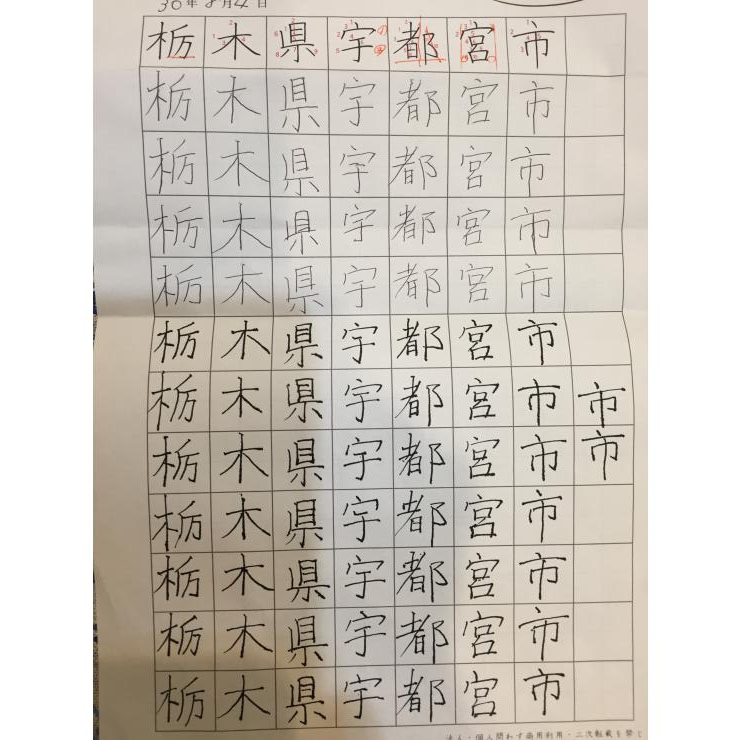 30年8月4日
栃木県宇都宮市
栃木県宇都宮市
栃木県宇都宮市
栃木県宇都宮市
栃木県宇都宮市
栃木県宇都宮市
栃木県宇都宮市市
栃木県宇都宮市市
栃木県宇都宮市
栃木県宇都宮市
栃木県宇都宮市
栃木県宇都宮市
法人・個人問わず商用利用・二次転載を禁じ